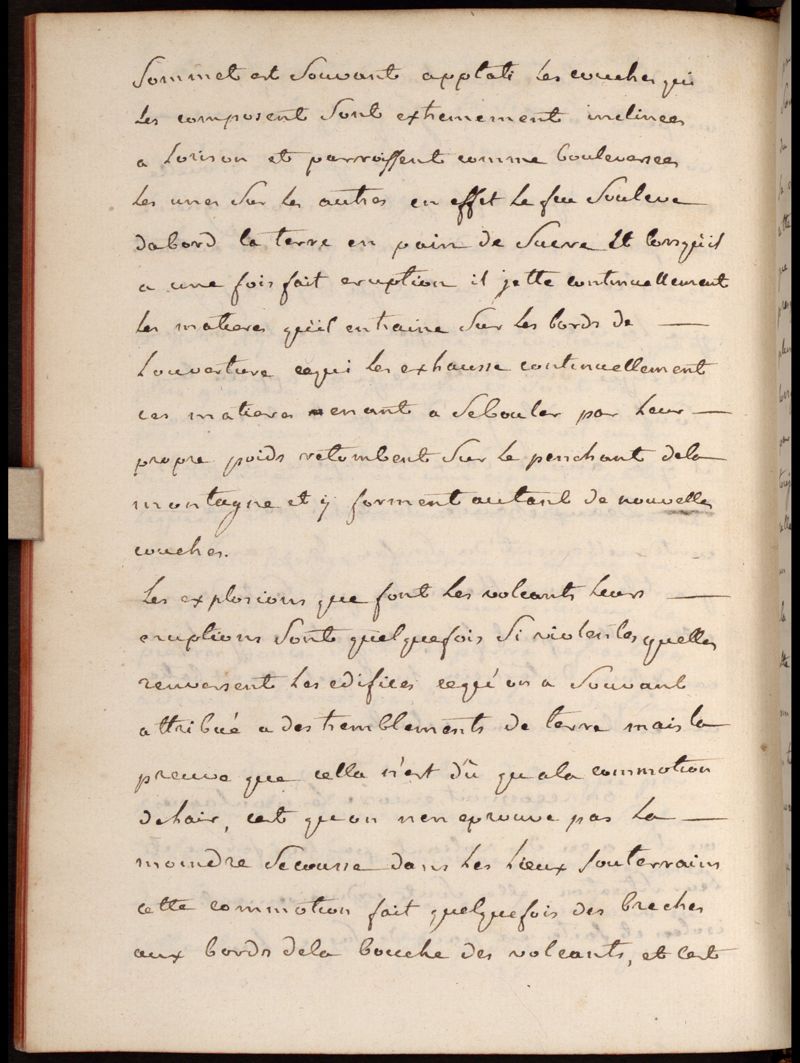 Sommet est Souvant applati les couches qui
les composent Sont extremement inclinees
a lorison et parroissent comme bouleversees
les unes Sur les autres en effet le feu Souleve
dabord la terre en pain de Sucre Et lorsquil
a une fois fait eruption il jette continuellement
les matieres quil entraine Sur les bords de —
louverture cequi les exhausse continuellement
ces matieres venant a Sebouler par leur —
propre poids retombent Sur le penchant dela
montagne et y forment autant de nouvelles
couches.
les explosions que font les volcants leurs —
eruptions Sont quelquefois Si violentes quelles
renversent les edifices cequi on a Souvant
attribué a des tremblements de terre mais la
preuve que cella n'est dû qu a la commotion
de lair, cest qu on n en eprouve pas la —
moindre Secousse dans les lieux Souterrains
cette commotion fait quelquefois des breches
aux bords dela bouche des volcants, et cest